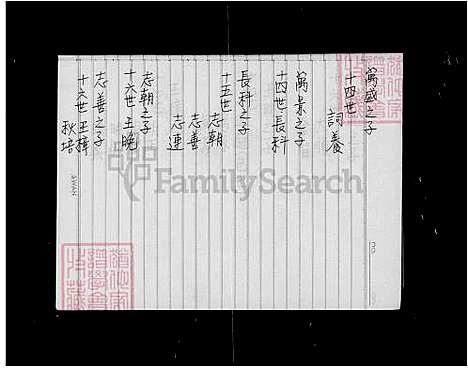 萬盛之子
十四世
詞養
萬景之子
十四世長科
長科之子
十五世
志朝
志善
志連
志朝之子
十六世玉晚
志善之子
十六世玉樺
秋培
FamilySearch